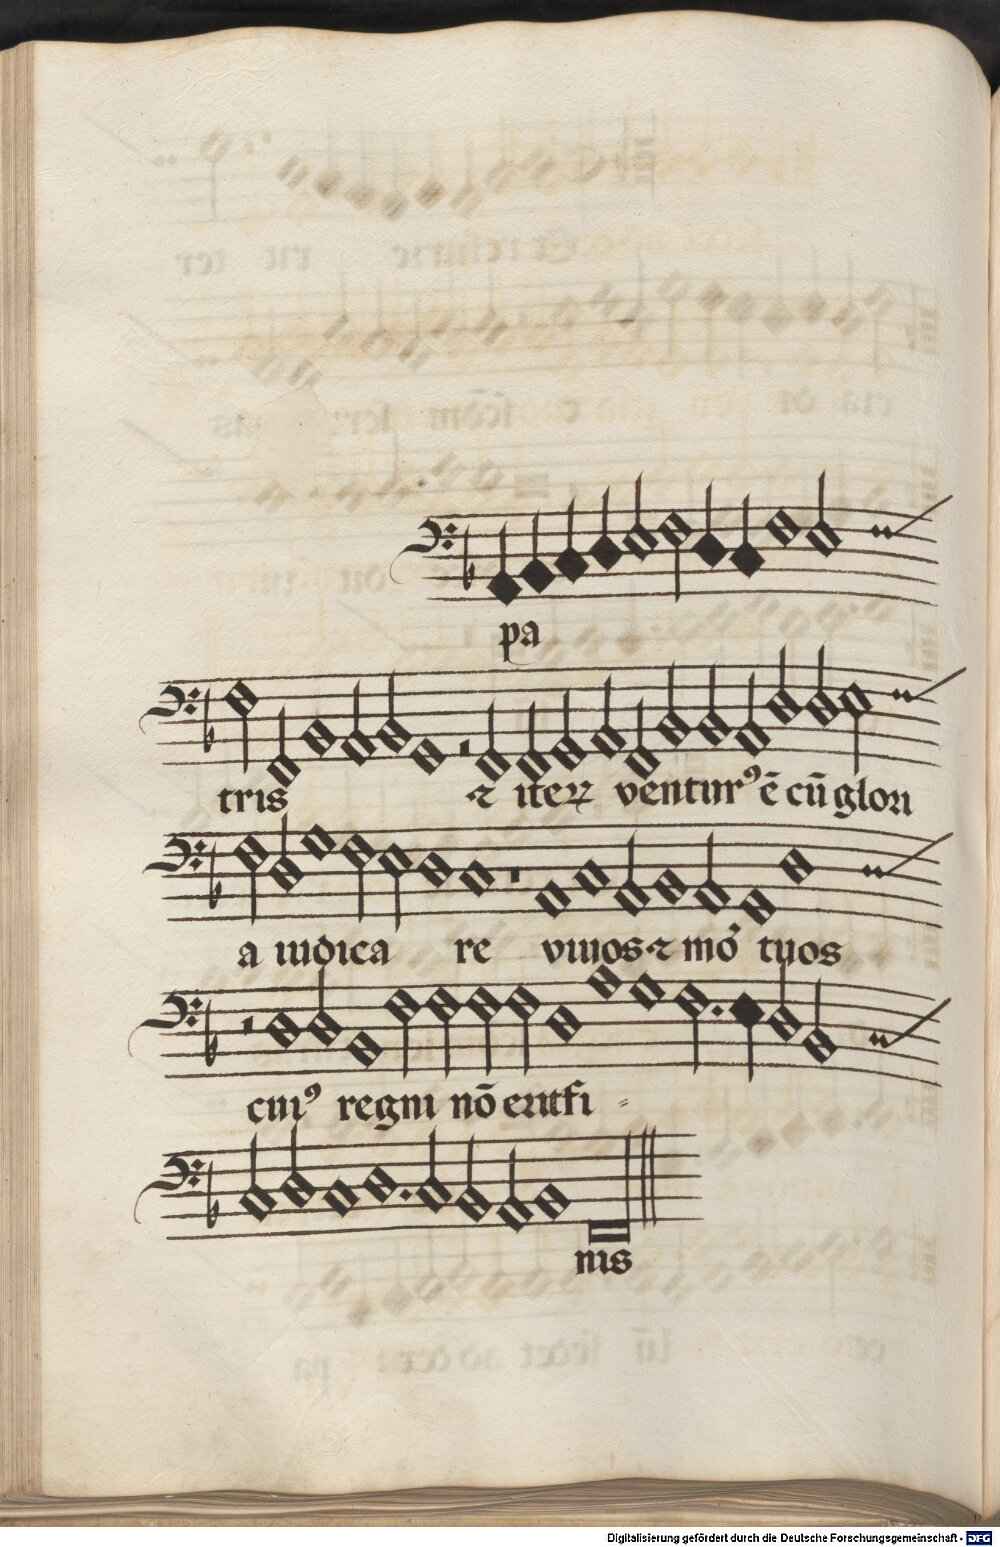 pa
tris ⁊ iteꝝ venturꝰ ē cū glori
a iudica re viuos ⁊ mō tuos
cuiꝰ regni nō erit fi =
nis
Digitalisierung gefördert durch die Deutsche Forschungsgemeinschaft - DFG